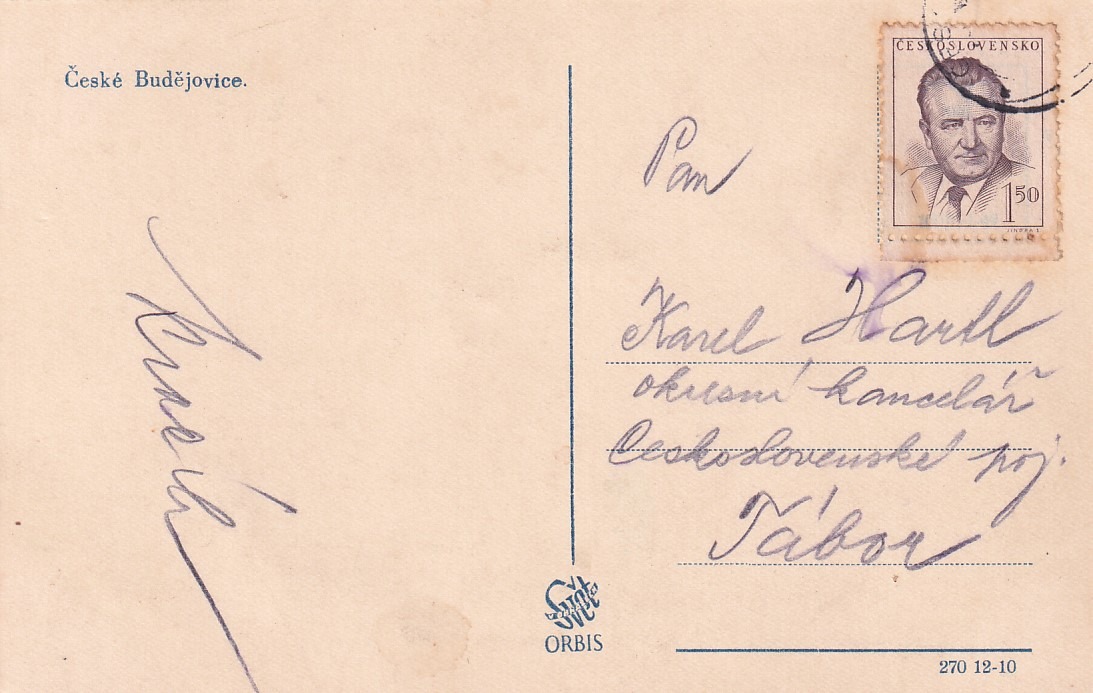 České Budějovice.
ČESKOSLOVENSKO
1 50
Pan
Karel Hartl
okresní kancelář
Československé poj.
Tábor
Svět
ORBIS
270 12-10